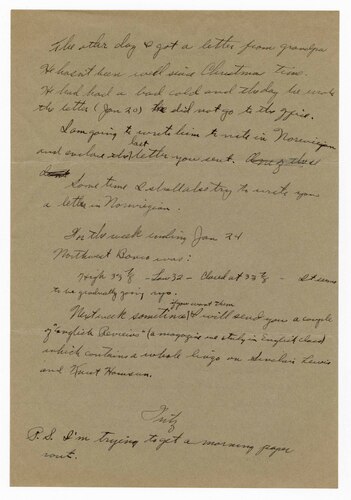 The other day I got a letter from grandpa
He hasn't been well since Christmas time.
He had had a bad cold and the day he wrote
the letter (Jan 20) he did not go to the office.
I am going to write him to write in Norwegian
last
and enclose the letter you sent.
Some time I shall also try to write you
a letter in Norwegian.
For the week ending Jan 24
Northwest Banco was:
High 33 7/8 - Low 32 - Closed at 33 7/8 - It seems
to be gradually going up.
if you want them
Next week sometime I will send you a couple
of "English Reviews" (a magazine we study in English class)
which contains a whole lingo on Sinclair Lewis
and Knut Hamsun.
Fritz
P.S. I'm trying to get a morning paper
rout.